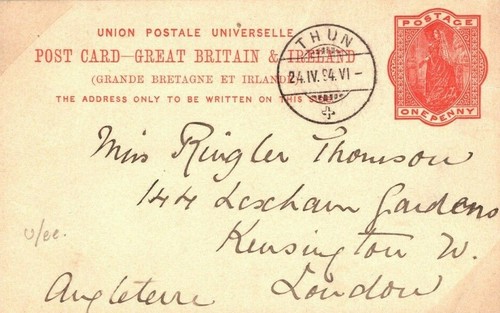 UNION POSTALE UNIVERSELLE
POST CARD—GREAT BRITAIN & IRELAND
(GRANDE BRETAGNE ET IRLANDE)
THE ADDRESS ONLY TO BE WRITTEN ON THIS
THUN
24.IV.94.VI-
POSTAGE
ONE PENNY
Miss Ringler Thomson
144 Lexham Gardens
Kensington W.
London
Angleterre